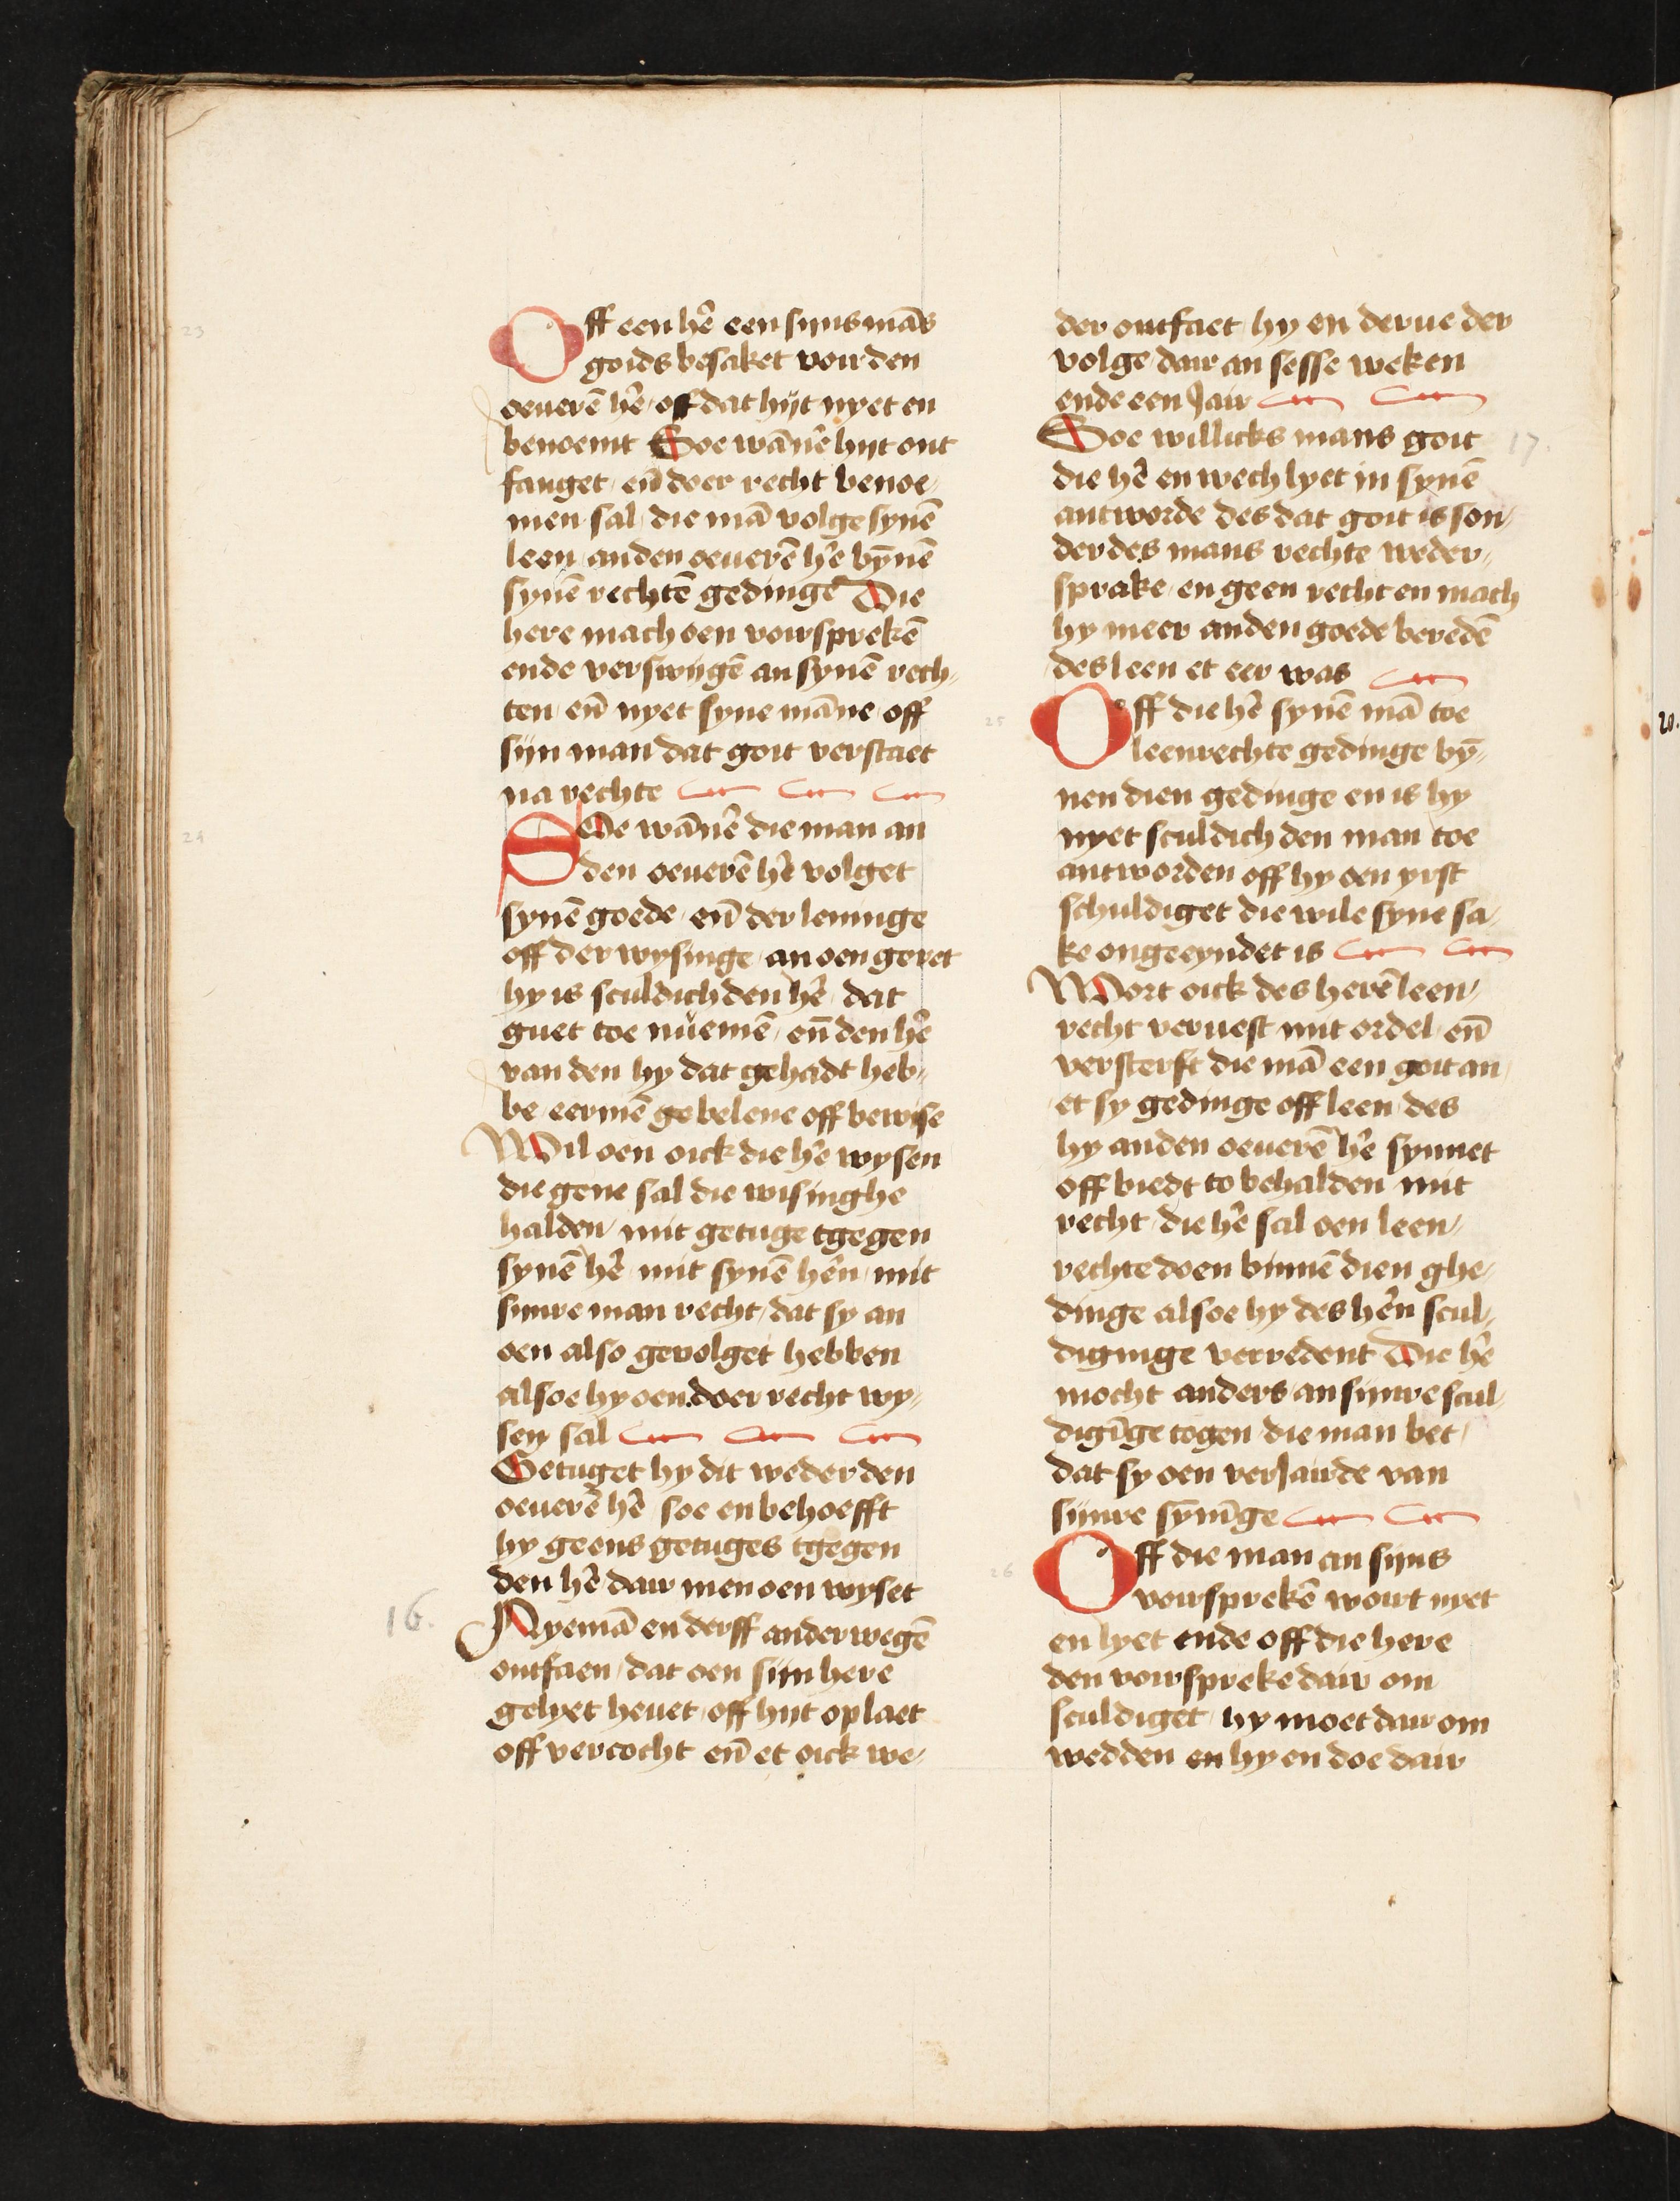 23
Off een hē een sijns mās
goids besaket voir den
oeuerē hē off dat hijt nyet en
benoemt Soe wānē hijt ont
fanget eñ doer recht benoe
men sal die mā volge synē
leen an den oeuerē hē bȳnē
synē rechtē gedingē Die
here mach oen voirsprekē
ende verswigē an synē rech
ten eñ nyet syne māne off
sijn man dat goit verstaet
na rechte
24
Soe wānē die man an
den oeuerē hē volget
synē goede eñ der leninge
off der wysinge an oen geret
hy is sculdich den hē dat
guet toe nuemē eñ den hē
van den hy dat gehadt heb
be eermē ge belene off bewise
Wil oen oick die hē wysen
die gene sal die wisinghe
halden mit getuge tgegen
synē hē mit synē hēn mit
sinre man recht dat sy an
oen also gevolget hebben
alsoe hy oen doer recht wy
sen sal
Getuget hy dit weder den
oeuerē hē soe en behoefft
hy geens getuges tgegen
den hē dair men oen wyset
16.
Nyemā en derff anderwegē
ontfaen dat oen sijn here
gelyet heuet off hijt op laet
off vercocht eñ et oick we
der ontfaet hy en derue der
volge dair an sesse weken
ende een Jair
Soe willicks mans goit
17.
die hē en wech lyet in synē
antworde des dat goit is son
der des mans rechte weder
sprake en geen recht en mach
hy meer an den goede beredē
des leen et eer was
25
Off die hē synē mā toe
leenrechte gedinge bȳ
nen dien gedinge en is hy
nyet sculdich den man toe
antworden off hy oen yrst
schuldiget die wile syne sa
ke ongeeyndet is
Wort oick des herē leen
recht veruest mit ordel eñ
versterft die mā een goit an
et sy gedinge off leen des
hy an den oeuerē hē synnet
off biedt to behalden mit
recht die hē sal oen leen
rechte doen binnē dien ghe
dinge alsoe hy des hēn scul
diginge verredent Die hē
mocht anders an sijnre scul
digīge togen die man bet
dat sy oen verJairde van
sijnre sȳnīge
26
Off die man an sijns
voirsprekē woirt nyet
en lyet ende off die here
den voirspreke dair om
sculdiget hy moet dair om
wedden en hy en doe dair
20.